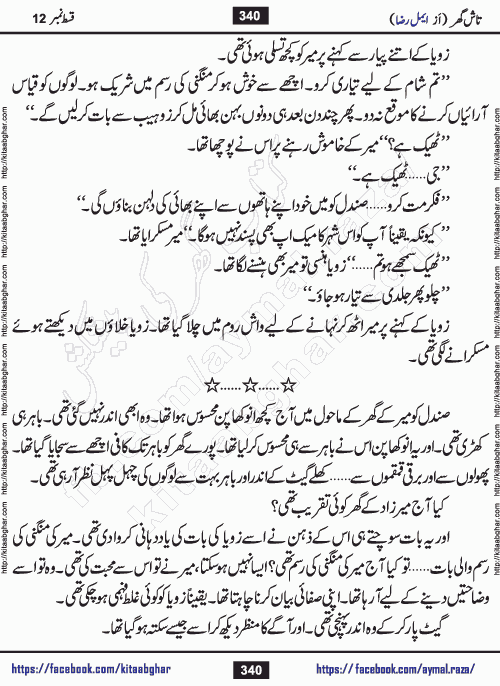 تاش گھر (از ایمل رضا) 340 قسط نمبر 12
زویا کے اتنے پیار سے کہنے پر میر کو کچھ تسلی ہوئی تھی۔
”تم شام کے لیے تیاری کرو۔ اچھے سے خوش ہو کر منگنی کی رسم میں شریک ہو۔ لوگوں کو قیاس
آرائیاں کرنے کا موقع نہ دو۔ پھر چند دن بعد ہی دونوں بہن بھائی مل کر زوہیب سے بات کر لیں گے۔“
”ٹھیک ہے؟“ میر کے خاموش رہنے پر اس نے پوچھا تھا۔
”جی……ٹھیک ہے۔“
”فکر مت کرو……صندل کو میں خود اپنے ہاتھوں سے اپنے بھائی کی دلہن بناؤں گی۔“
”کیونکہ یقیناً آپ کو اس شہر کا میک اپ بھی پسند نہیں ہوگا۔“ میر مسکرایا تھا۔
”ٹھیک سمجھے ہو تم……“ زویا ہنسی تو میر بھی ہنسنے لگا تھا۔
”چلو پھر جلدی سے تیار ہو جاؤ۔“
زویا کے کہنے پر میر اٹھ کر نہانے کے لیے واش روم میں چلا گیا تھا۔ زویا خلاؤں میں دیکھتے ہوئے
مسکرانے لگی تھی۔
☆……☆……☆
صندل کو میر کے گھر کے ماحول میں آج کچھ انوکھا پن محسوس ہوا تھا۔ وہ ابھی اندر نہیں گئی تھی۔ باہر ہی
کھڑی تھی۔ اور یہ انوکھا پن اس نے باہر سے ہی محسوس کر لیا تھا۔ پورے گھر کو باہر تک کافی اچھے سے سجایا گیا تھا۔
پھولوں سے اور برقی قمقموں سے……کھلے گیٹ کے اندر اور باہر بہت سے لوگوں کی چہل پہل نظر آرہی تھی۔
کیا آج میرزاد کے گھر کوئی تقریب تھی؟
اور یہ بات سوچتے ہی اس کے ذہن نے اسے زویا کی بات کی یاد دہانی کروا دی تھی۔ میر کی منگنی کی
رسم والی بات……تو کیا آج میر کی منگنی کی رسم تھی؟ ایسا نہیں ہو سکتا، میر نے تو اس سے محبت کی تھی۔ وہ تو اسے
وضاحتیں دینے کے لیے آ رہا تھا۔ اپنی صفائی بیان کرنا چاہتا تھا۔ یقیناً زویا کو کوئی غلط فہمی ہو چکی تھی۔
گیٹ پار کر کے وہ اندر پہنچی تھی۔ اور آگے کا منظر دیکھ کر اسے جیسے سکتہ ہو گیا تھا۔
https://facebook.com/kitaabghar 340 https://facebook.com/aymal.raza/
http://kitaabghar.com http://kitaabghar.com http://kitaabghar.com http://kitaabghar.com http://kitaabghar.com http://kitaabghar.com
http://kitaabghar.com http://kitaabghar.com http://kitaabghar.com http://kitaabghar.com http://kitaabghar.com http://kitaabghar.com